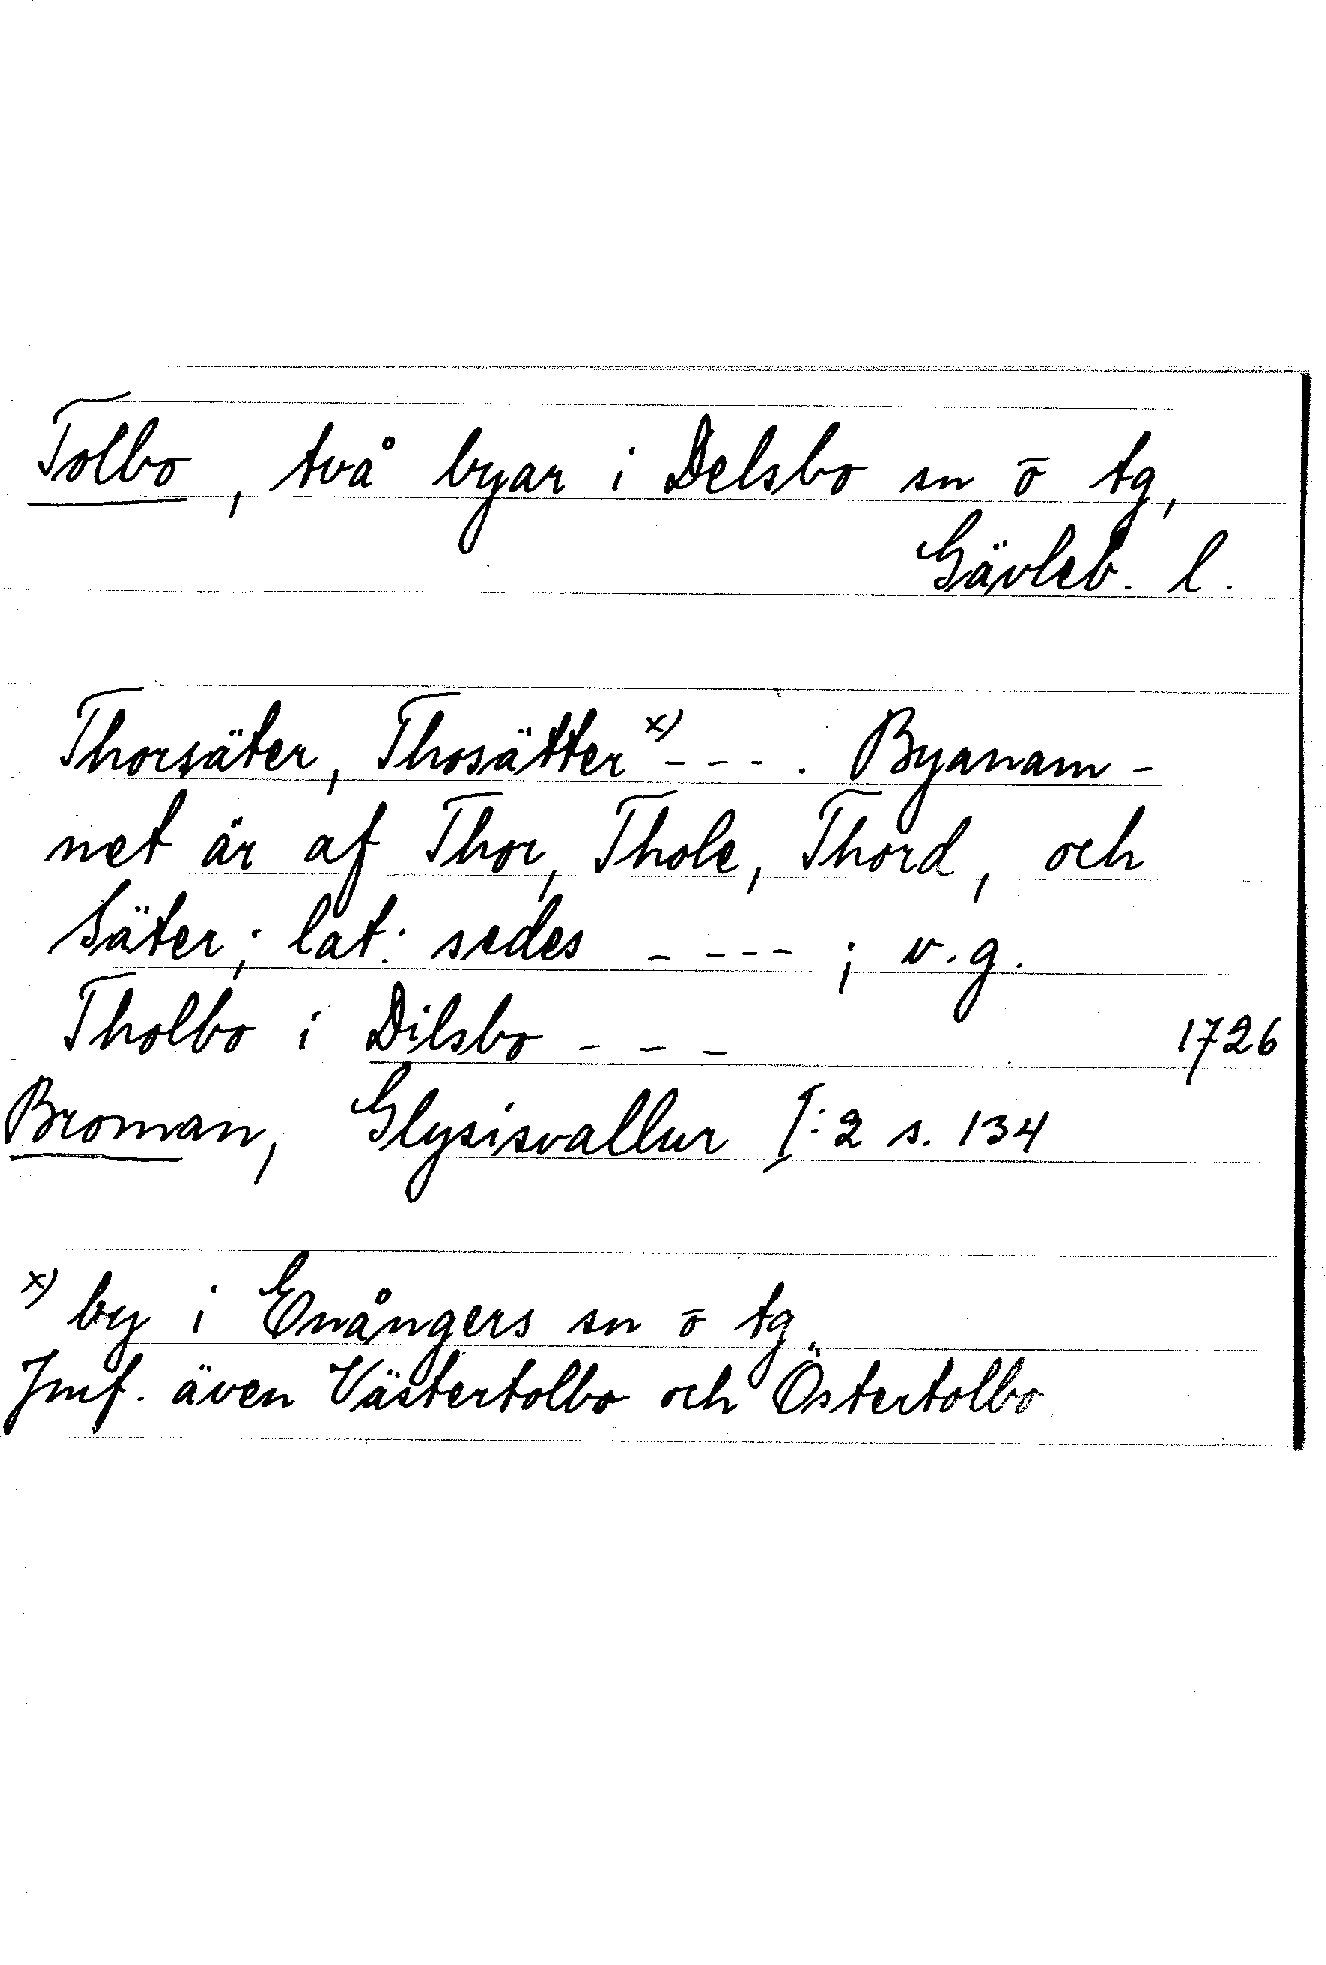 Tolbo, två byar i Delsbo sn o tg,
Gävleb. l.
Thorsäter, Thosätter x) - - - . Byanam-
net är af Thor, Thole, Thord, och
Säter; lat: sedes - - - - ; v.g.
Tholbo i Dilsbo - - - 1726
Broman, Glysisvallur I:2 s. 134
x) by i Enångers sn o tg
Jmf. även Västertolbo och Östertolbo